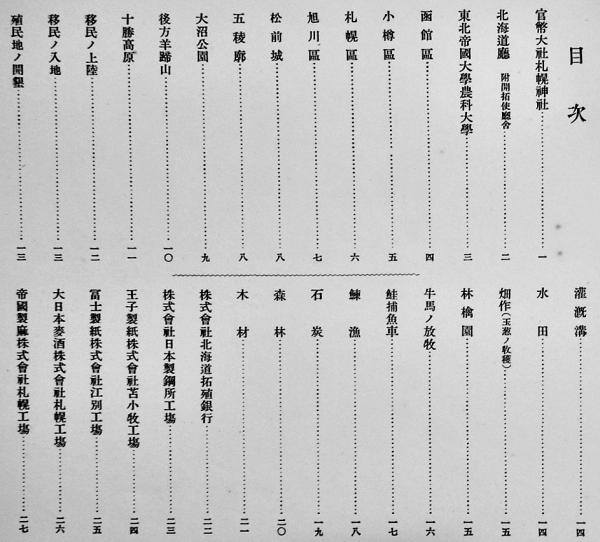 目次
官幣大社札幌神社 一
北海道廳 附開拓使廳舍 二
東北帝國大學農科大學 三
函館區 四
小樽區 五
札幌區 六
旭川區 七
松前城 八
五稜廓 八
大沼公園 九
後方羊蹄山 一〇
十勝高原 一一
移民ノ上陸 一二
移民ノ入地 一三
殖民地ノ開墾 一三
灌漑溝 一四
水田 一四
畑作(玉葱ノ收穫) 一五
林檎園 一五
牛馬ノ放牧 一六
鮭捕魚車 一七
鰊漁 一八
石炭 一九
森林 二〇
木材 二一
株式會社北海道拓殖銀行 二二
株式會社日本製鋼所工場 二三
王子製紙株式會社苫小牧工場 二四
冨士製紙株式會社江別工場 二五
大日本麥酒株式會社札幌工場 二六
帝國製麻株式會社札幌工場 二七